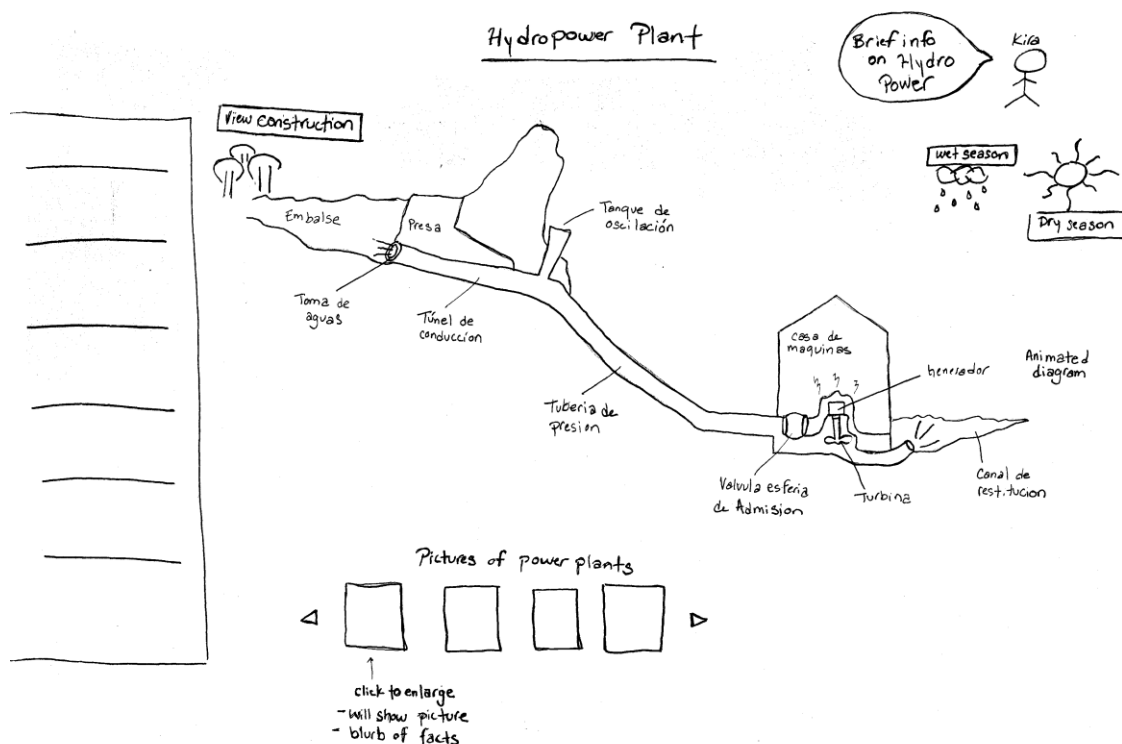 Hydropower Plant
Brief info
on Hydro
Power
Kira
View construction
wet season
Dry season
Embalse
Presa
Tanque de
oscilación
Toma de
aguas
Túnel de
conduccion
casa de
maquinas
henerador
Animated
diagram
Tuberia de
presion
Valvula esferia
de Admision
Turbina
Canal de
restitucion
Pictures of power plants
click to enlarge
- will show picture
- blurb of facts